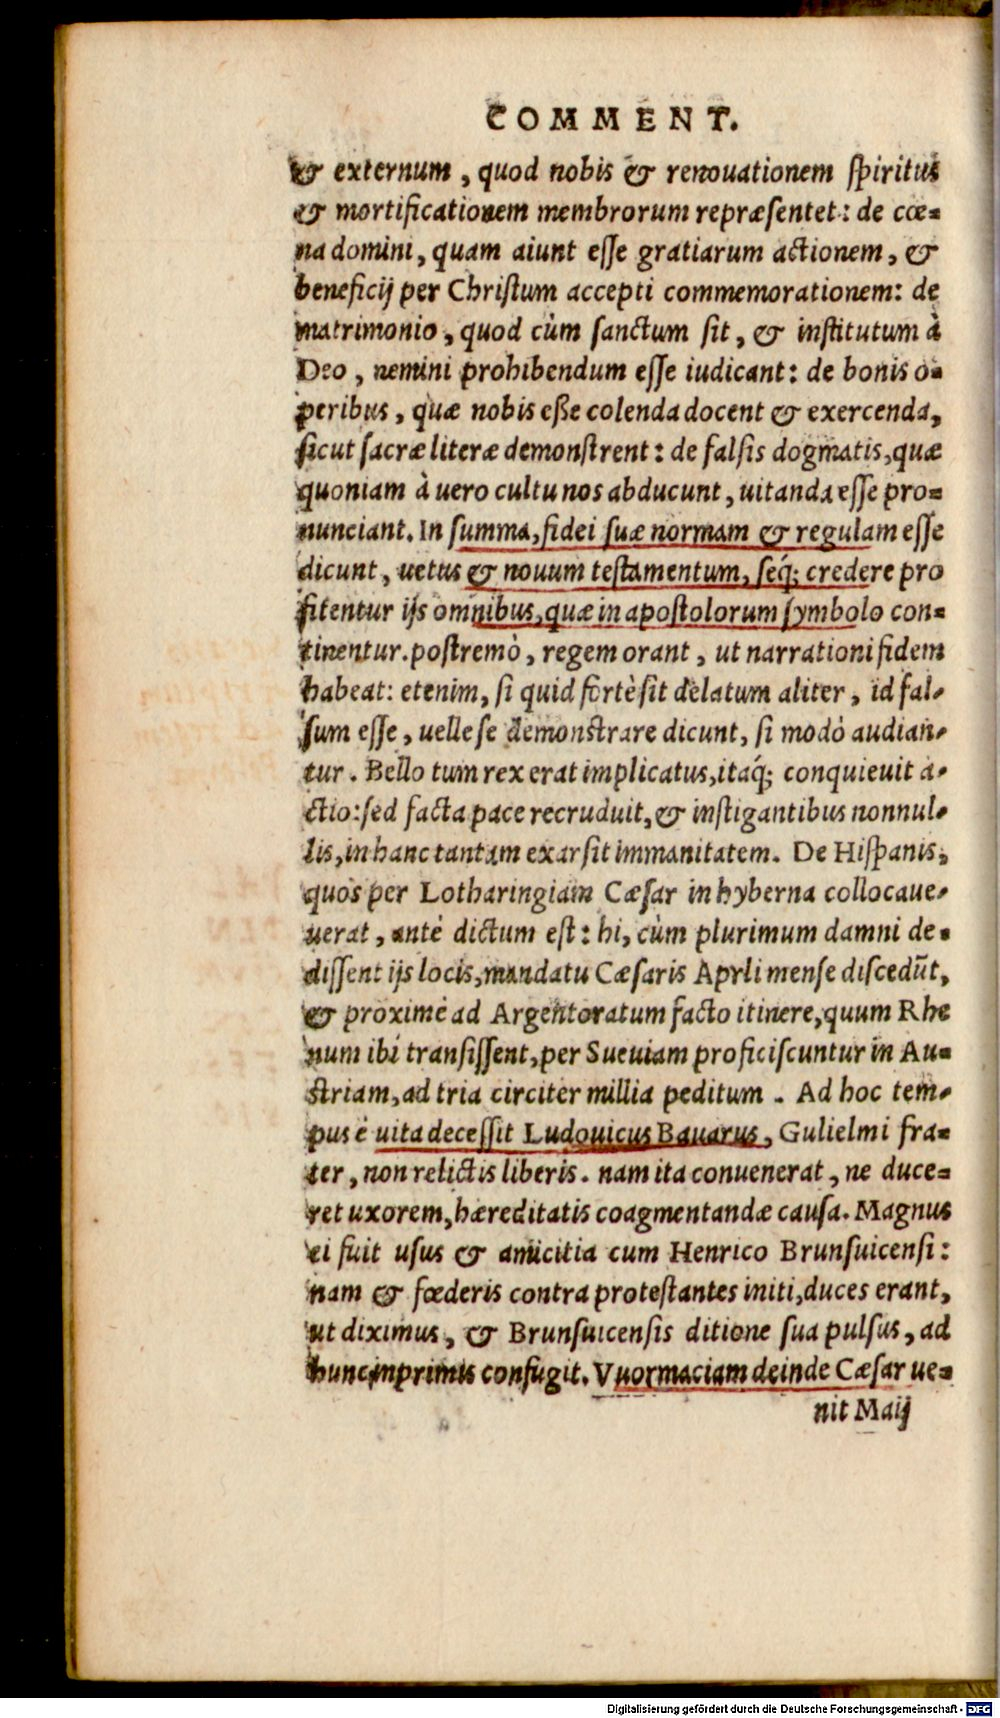 COMMENT.
& externum, quod nobis & renouationem spiritus
& mortificationem membrorum repræsentet: de cœ-
na domini, quam aiunt esse gratiarum actionem, &
beneficij per Christum accepti commemorationem: de
matrimonio, quod cùm sanctum sit, & institutum à
Deo, nemini prohibendum esse iudicant: de bonis o-
peribus, quæ nobis esse colenda docent & exercenda,
sicut sacræ literæ demonstrent: de falsis dogmatis, quæ
quoniam à uero cultu nos abducunt, uitanda esse pro-
nunciant. In summa, fidei suæ normam & regulam esse
dicunt, uetus & nouum testamentum, seq́; credere pro
fitentur ijs omnibus, quæ in apostolorum symbolo con-
tinentur. postremò, regem orant, ut narrationi fidem
habeat: etenim, si quid fortè sit delatum aliter, id fal-
sum esse, uelle se demonstrare dicunt, si modò audian-
tur. Bello tum rex erat implicatus, itaq́; conquieuit a-
ctio: sed facta pace recruduit, & instigantibus nonnul-
lis, in hanc tantam exarsit immanitatem. De Hispanis,
quos per Lotharingiam Cæsar in hyberna collocaue-
uerat, antè dictum est: hi, cùm plurimum damni de-
dissent ijs locis, mandatu Cæsaris Aprli mense discedūt,
& proximè ad Argentoratum facto itinere, quum Rhe
num ibi transissent, per Sueuiam proficiscuntur in Au-
striam, ad tria circiter millia peditum. Ad hoc tem-
pus è uita decessit Ludouicus Bauarus, Gulielmi fra-
ter, non relictis liberis. nam ita conuenerat, ne duce-
ret uxorem, hæreditatis coagmentandæ causa. Magnus
ei fuit usus & amicitia cum Henrico Brunsuicensi:
nam & fœderis contra protestantes initi, duces erant,
ut diximus, & Brunsuicensis ditione sua pulsus, ad
hunc inprimis confugit. Vuormaciam deinde Cæsar ue-
nit Maij
Digitalisierung gefördert durch die Deutsche Forschungsgemeinschaft - DFG